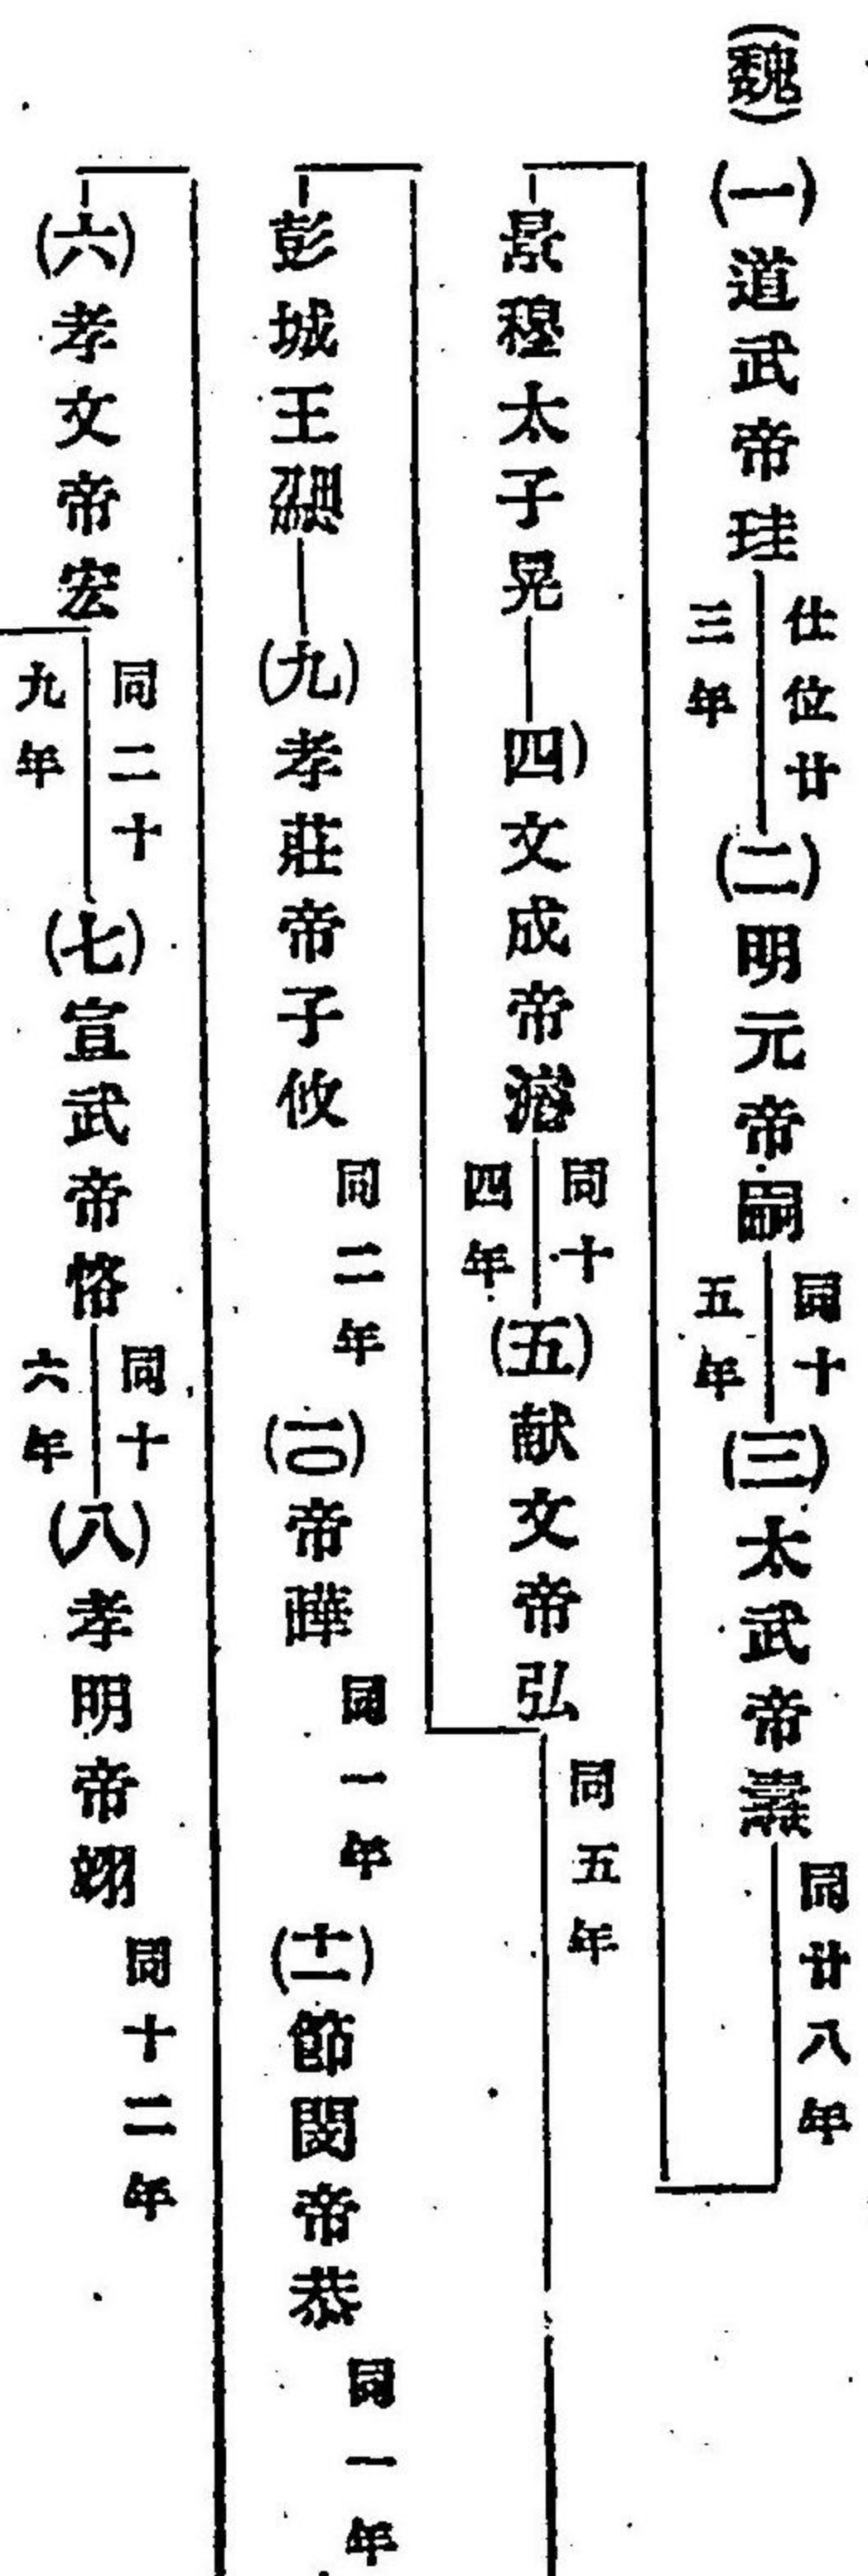 (魏)(一)道武帝珪 仕位廿三年 (二)明元帝嗣 同十五年 (三)太武帝燾 同廿八年
景穆太子晃 四)文成帝濬 同十四年 (五)献文帝弘 同五年
彭城王勰 (九)孝莊帝子攸 同二年 (一〇)帝曄 同一年 (十一)節閔帝恭 同一年
(六)孝文帝宏 同二十九年 (七)宣武帝恪 同十六年 (八)孝明帝翊 同十二年